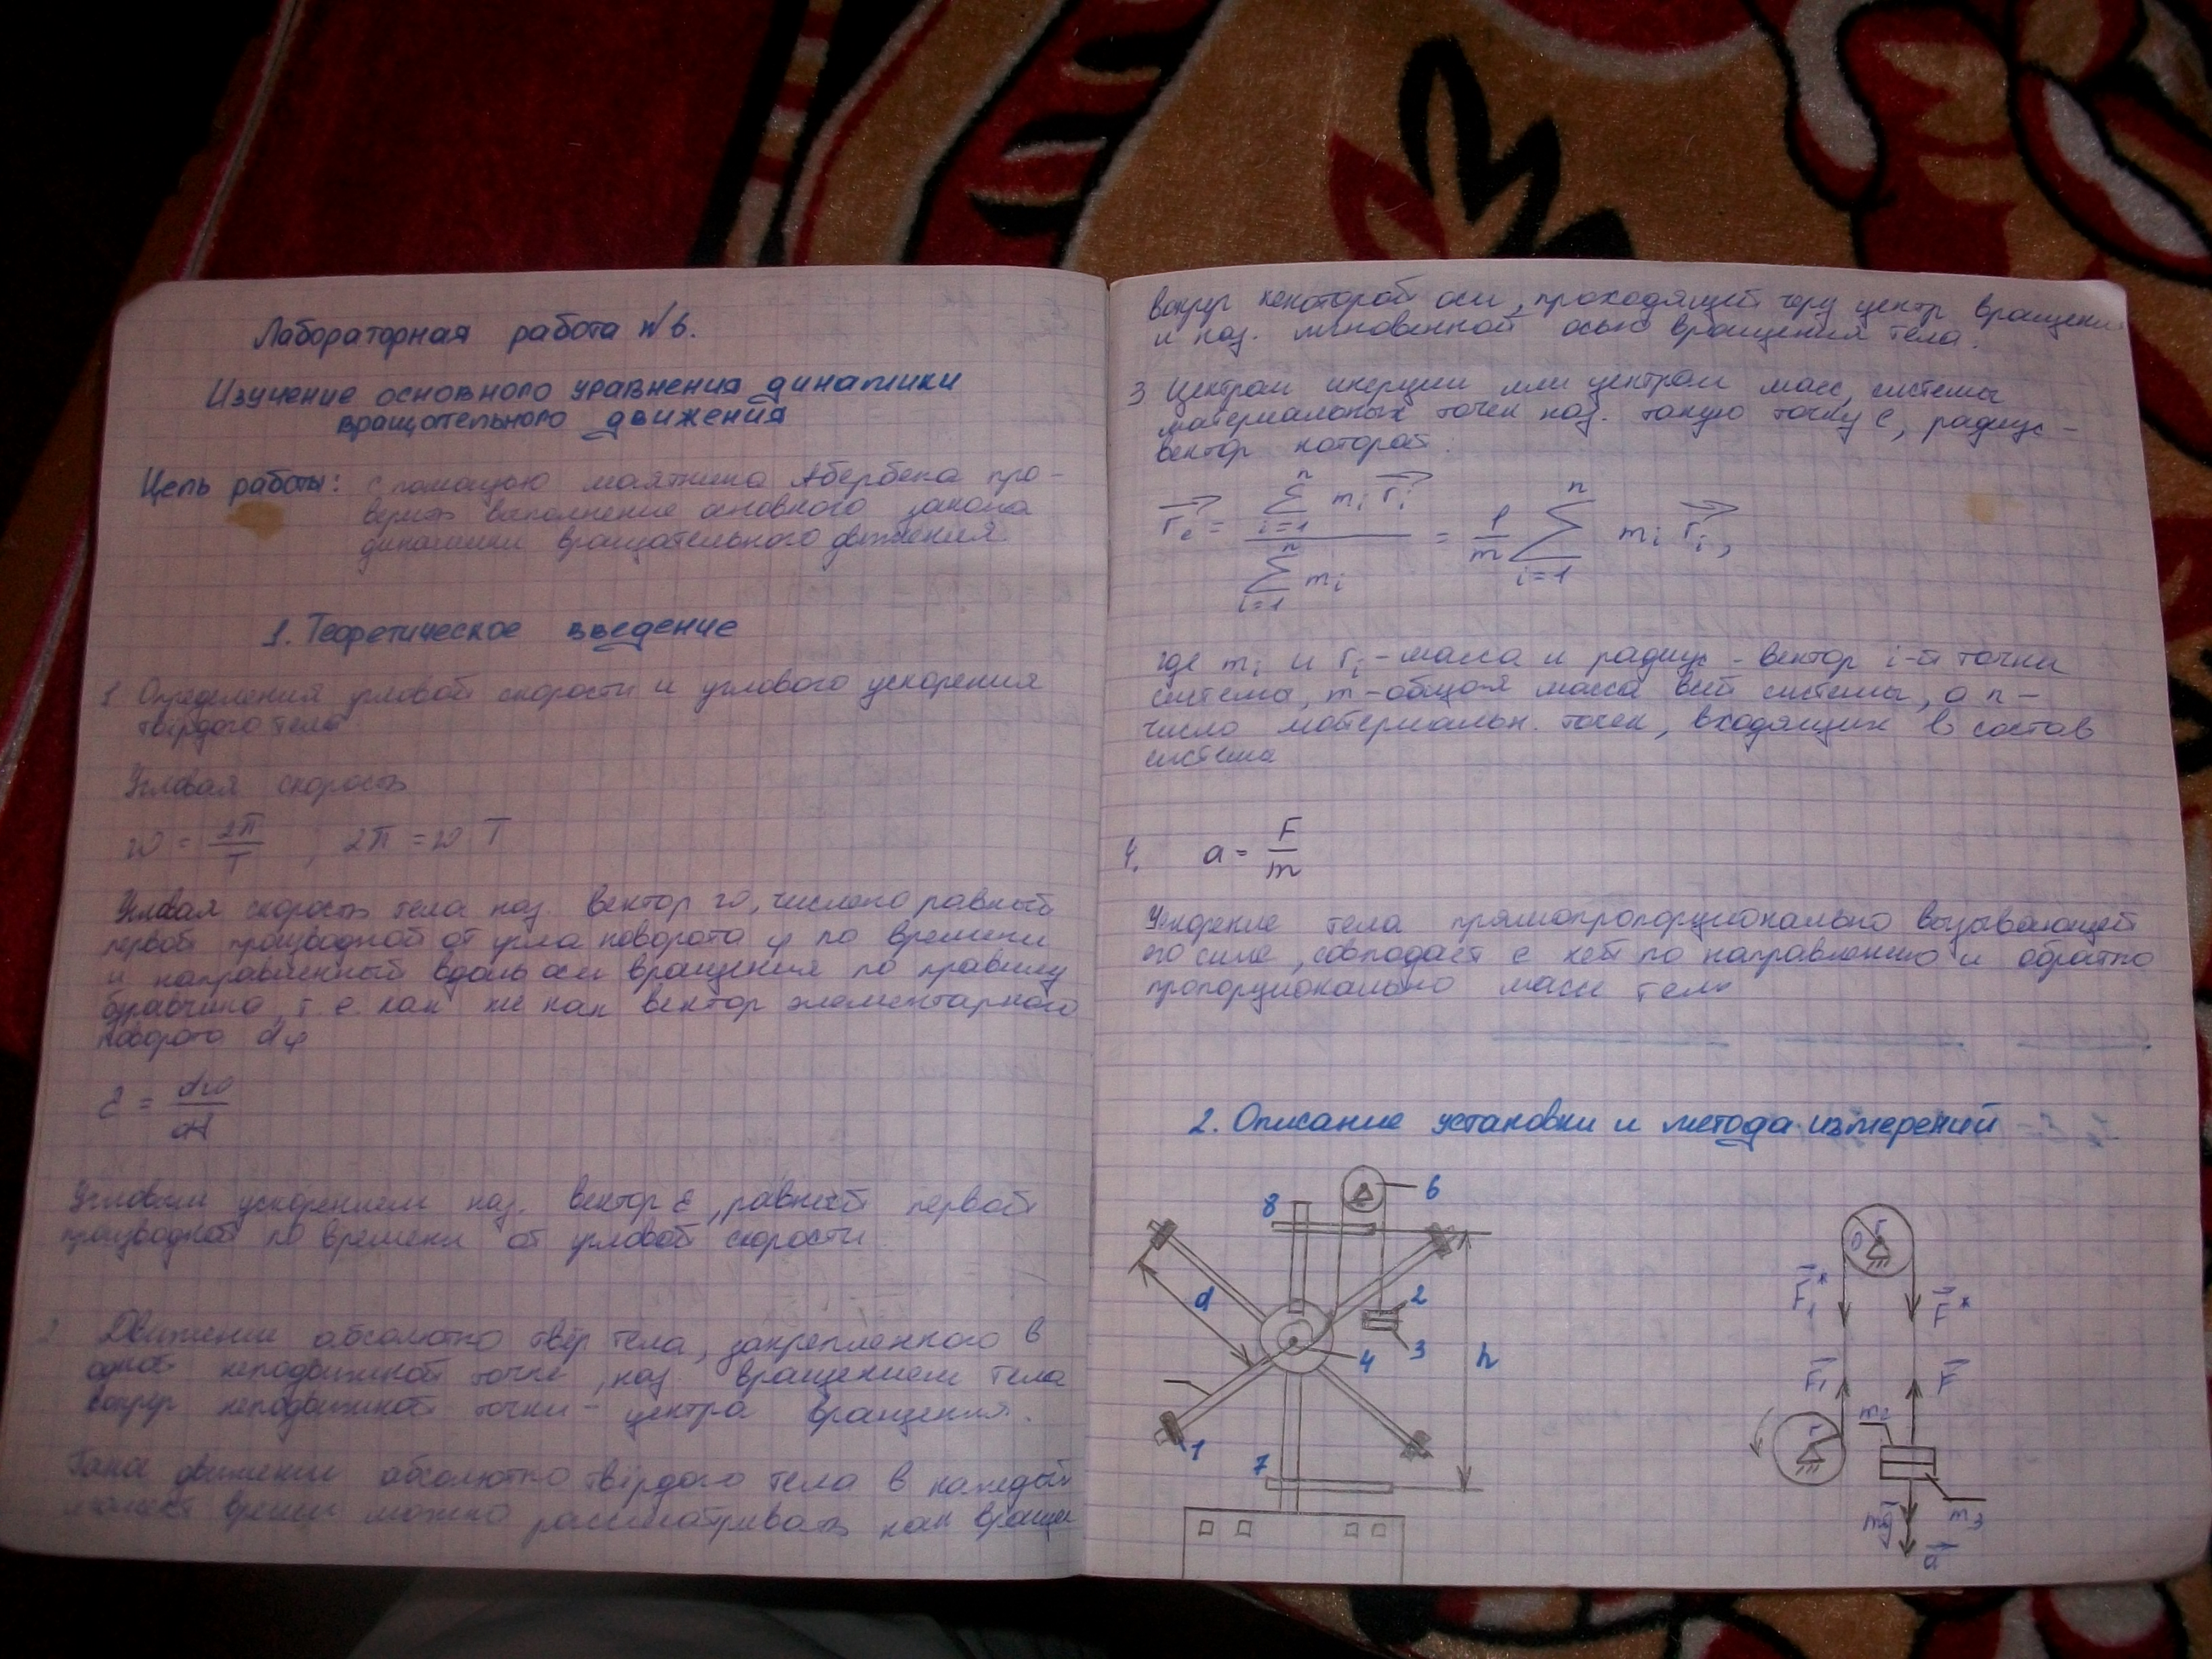 Лабораторная работа №6.
Изучение основного уравнения динамики
вращательного движения
Цель работы: с помощью маятника Абербека про-
верить выполнение основного закона
динамики вращательного движения.
1. Теоретическое введение
1 Определения угловой скорости и углового ускорения
твёрдого тела
Угловая скорость
ω = 2π/T , 2π = ω T
Угловая скорость тела наз. вектор ω, числено равный
первой производной от угла поворота φ по времени
и направленный вдоль оси вращения по правилу
буравчика, т.е. как же как вектор элементарного
поворота dφ
ε = dω/dt
Угловым ускорением наз. вектор ε, равный первой
производной по времени от угловой скорости.
2. Движение абсолютно твёр тела, закрепленного в
одной неподвижной точке, наз. вращением тела
вокруг неподвижной точки - центра вращения.
движении абсолютно твёрдого тела в каждый
момент время можно рассматривать как вращен
вокруг некоторой оси, проходящей через центр вращени
и наз. мгновенной осью вращения тела.
3 Центром инерции или центром масс, системы
материальных точек наз. такую точку C, радиус-
вектор которой:
r⃗c = ∑ⁿᵢ₌₁ mᵢ r⃗ᵢ / ∑ⁿᵢ₌₁ mᵢ = 1/m ∑ⁿᵢ₌₁ mᵢ r⃗ᵢ,
где mᵢ и rᵢ - масса и радиус-вектор i-й точки
система, m - общая масса всей системы, а n -
число материальн. точек, входящих в состав
система
4. a = F/m
Ускорение тела прямопропорционально вызывающей
его силе, совподает с ней по направлению и обратно
пропорционально массе тела
2. Описание установки и метода измерений
8
6
d
2
3
4
h
1
7
r
O
F⃗₁*
F⃗*
F⃗₁
F⃗
r
m₂
m₃
mg⃗
a⃗